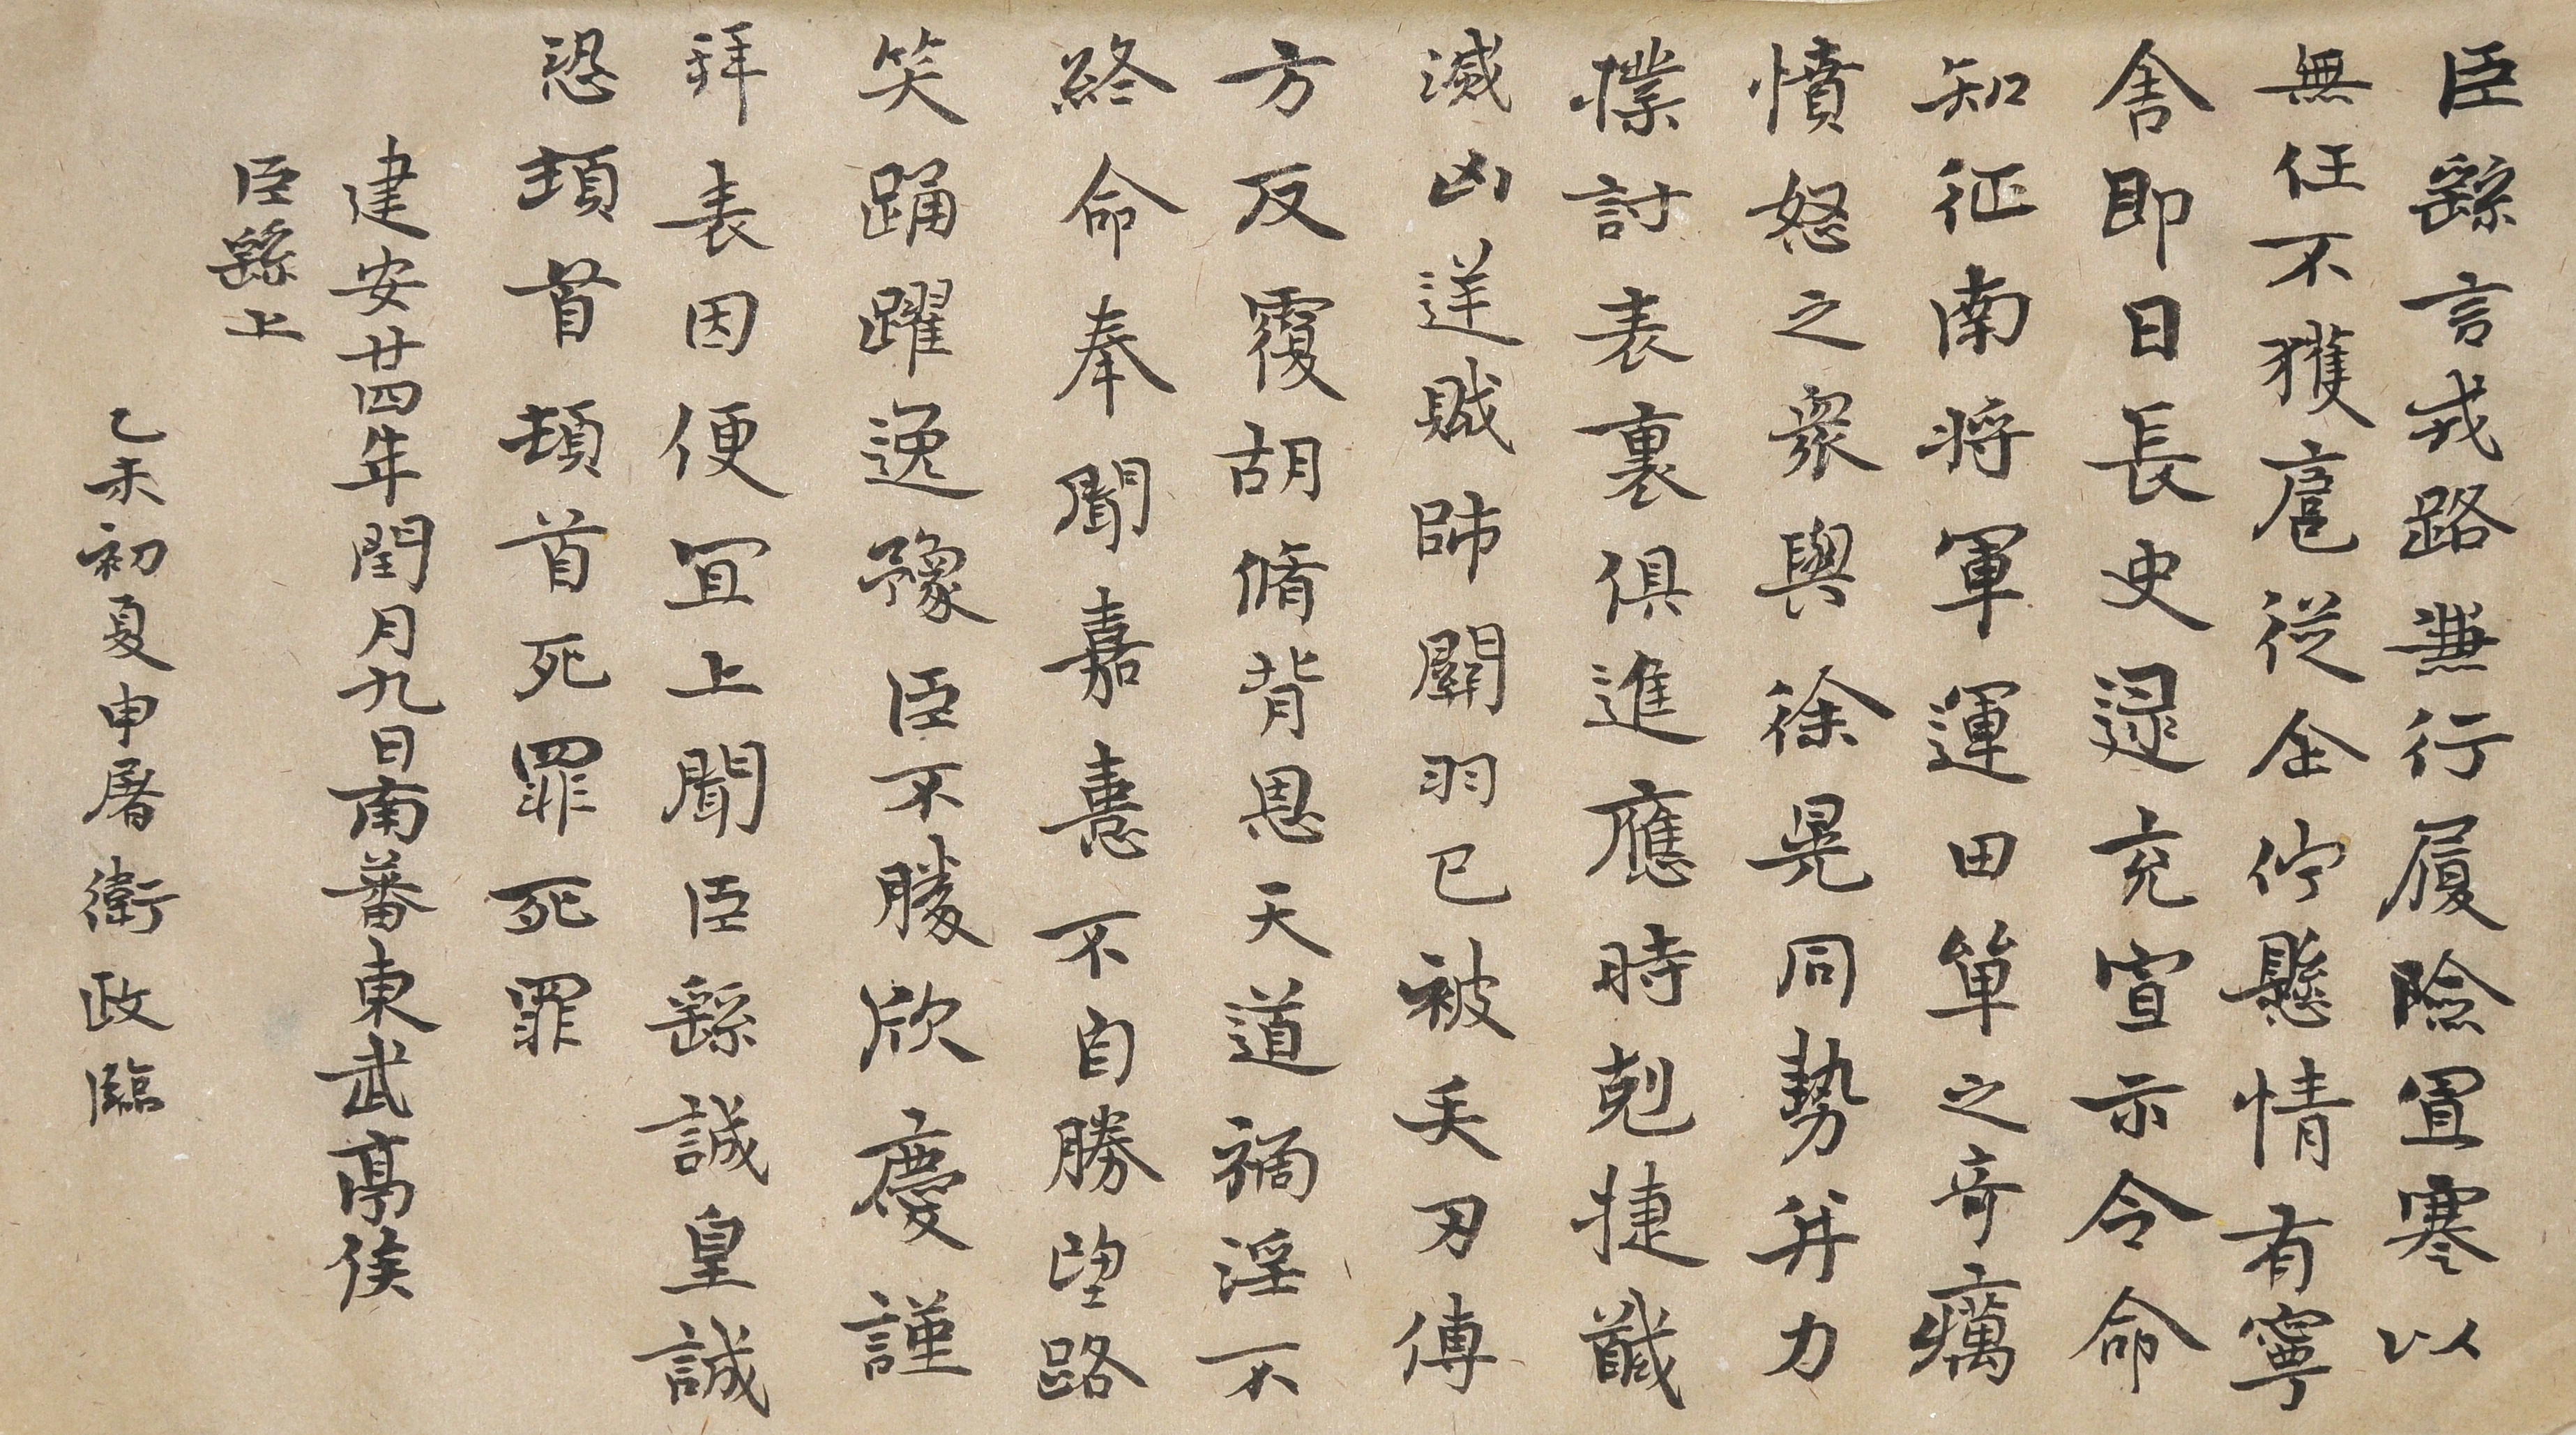 臣繇言戎路兼行履險冒寒以
無任不獲扈從企佇懸情有寧
舍即日長史逯充宣示令命
知征南將軍運田單之奇厲
憤怒之眾與徐晃同勢并力
撲討表裏俱進應時剋捷馘
滅凶逆賊帥關羽已被矢刃傅
方反覆胡脩背恩天道禍淫不
終命奉聞嘉憙不自勝望路
笑踊躍逸豫臣不勝欣慶謹
拜表因便宜上聞臣繇誠皇誠
恐頓首頓首死罪死罪
建安廿四年閏月九日南蕃東武亭侯
臣繇上
乙未初夏申屠衛政臨